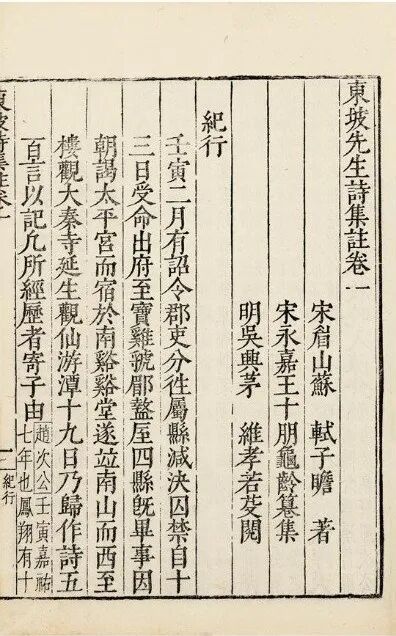 東坡先生詩集註卷一
宋眉山蘇 軾子瞻 著
宋永嘉王十朋龜齡纂集
明吳興茅 維孝若芟閱
紀行
壬寅二月有詔令郡吏分徃屬縣減決囚禁自十
三日受命出府至寶雞虢郿盩厔四縣旣畢事因
朝謁太平宮而宿於南谿谿堂遂竝南山而西至
樓觀大秦寺延生觀仙游潭十九日乃歸作詩五
百言以記凡所經歷者寄子由
趙次公壬寅嘉祐
七年也鳳翔有十
東坡詩集註卷一
一
紀行